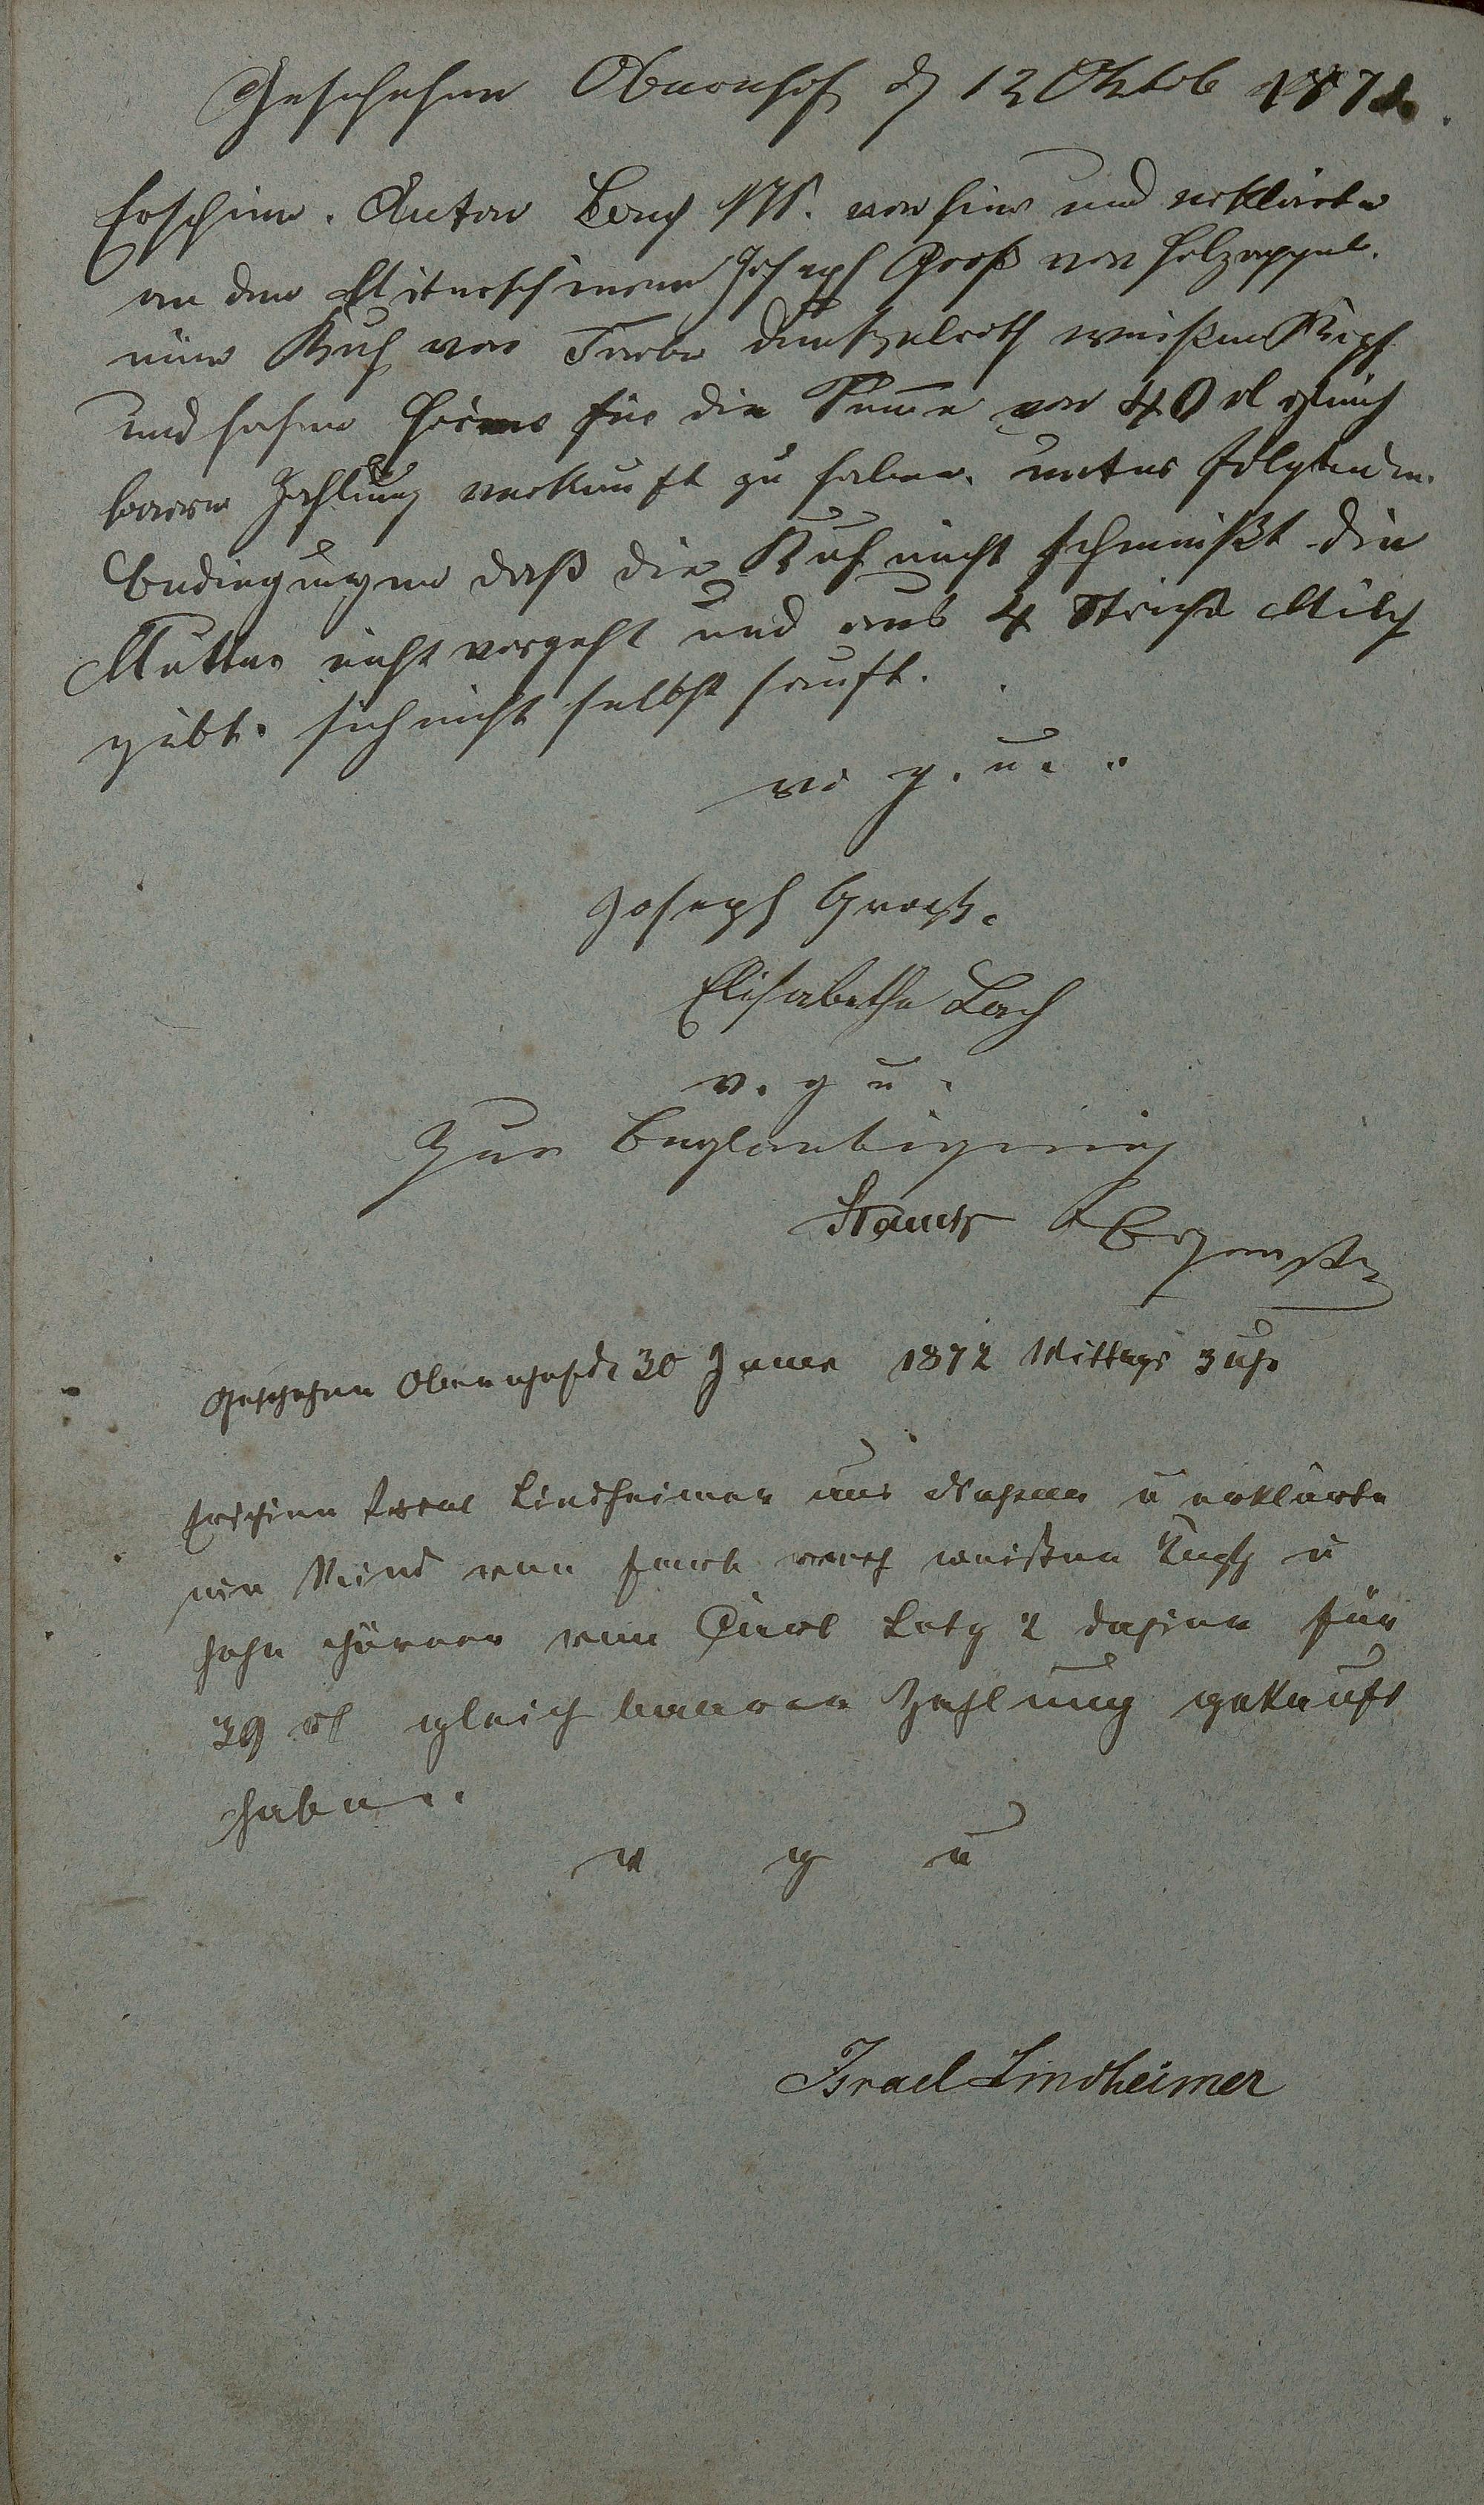 Geschehen Obernhof d 12 Oktob 187
Erschien. Anton Bach von hier und erklärte
an den Miterschienen Joseph Groß von Holzappel.
eine Kuh von Farbe dunkelroth weißen Kopf
und hohen Hörner für die Summe von 40 rl gleich
baare Zahlung verkauft zu haben. unter folgenden.
Bedingungen daß die Kuh nicht schmeißt die
Mutter nicht vorgeht und aus 4 Striche Milch
giebt. sich nicht selbst sauft.
v. g. u.
Joseph Groß.
Elisabetha Bach
v. g u.
Zur Beglaubigung
Geschehen Obernhof d 30 Januar 1872 Mittags 3 Uhr
Erschien Israel Lindheimer aus Nassau u erklärte
ein Rind von Farb roth weißen Kopf u
hohe Hörner von Carl dahier für
39 rl gleich baaren Zahlung gekauft
haben.
v g u
Israel Lindheimer